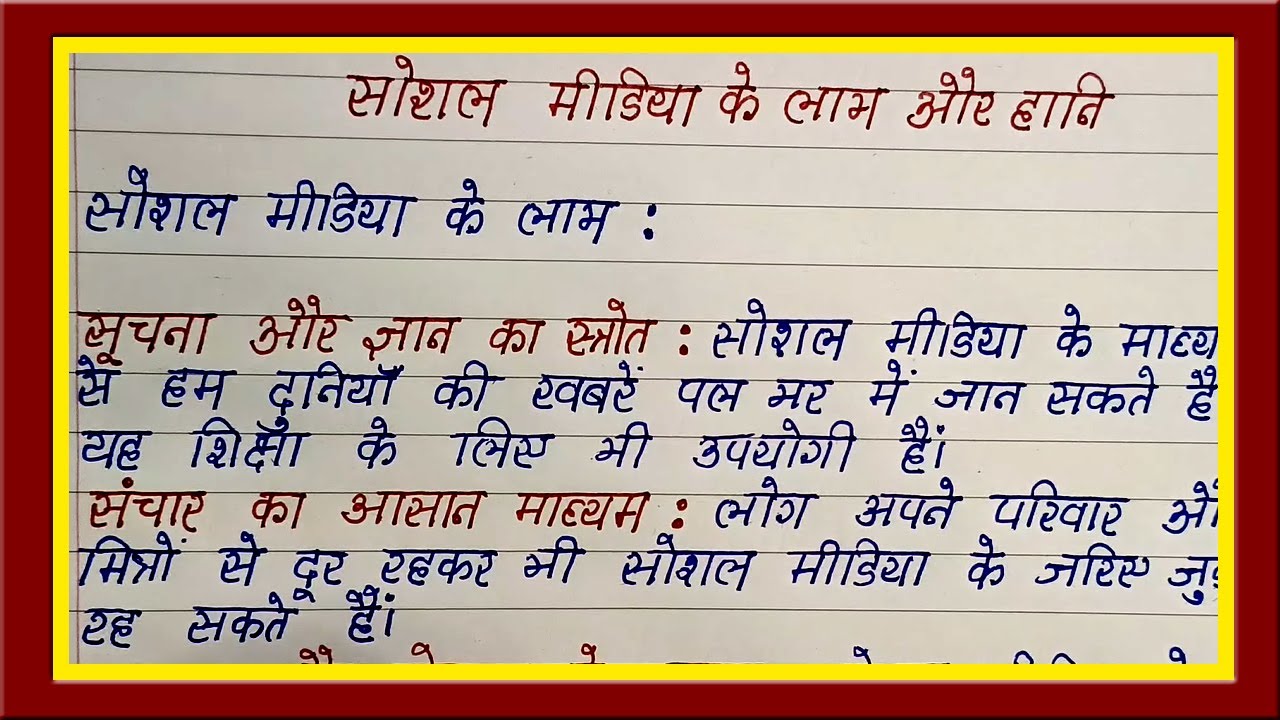 सोशल मीडिया के लाभ और हानि
सोशल मीडिया के लाभ :
सूचना और ज्ञान का स्त्रोत : सोशल मीडिया के माध्य
से हम दुनियाँ की खबरें पल भर में जान सकते है
यह शिक्षा के लिए भी उपयोगी हैं।
संचार का आसान माध्यम : लोग अपने परिवार औ
मित्रों से दूर रहकर भी सोशल मीडिया के जरिए जु
रह सकते हैं।